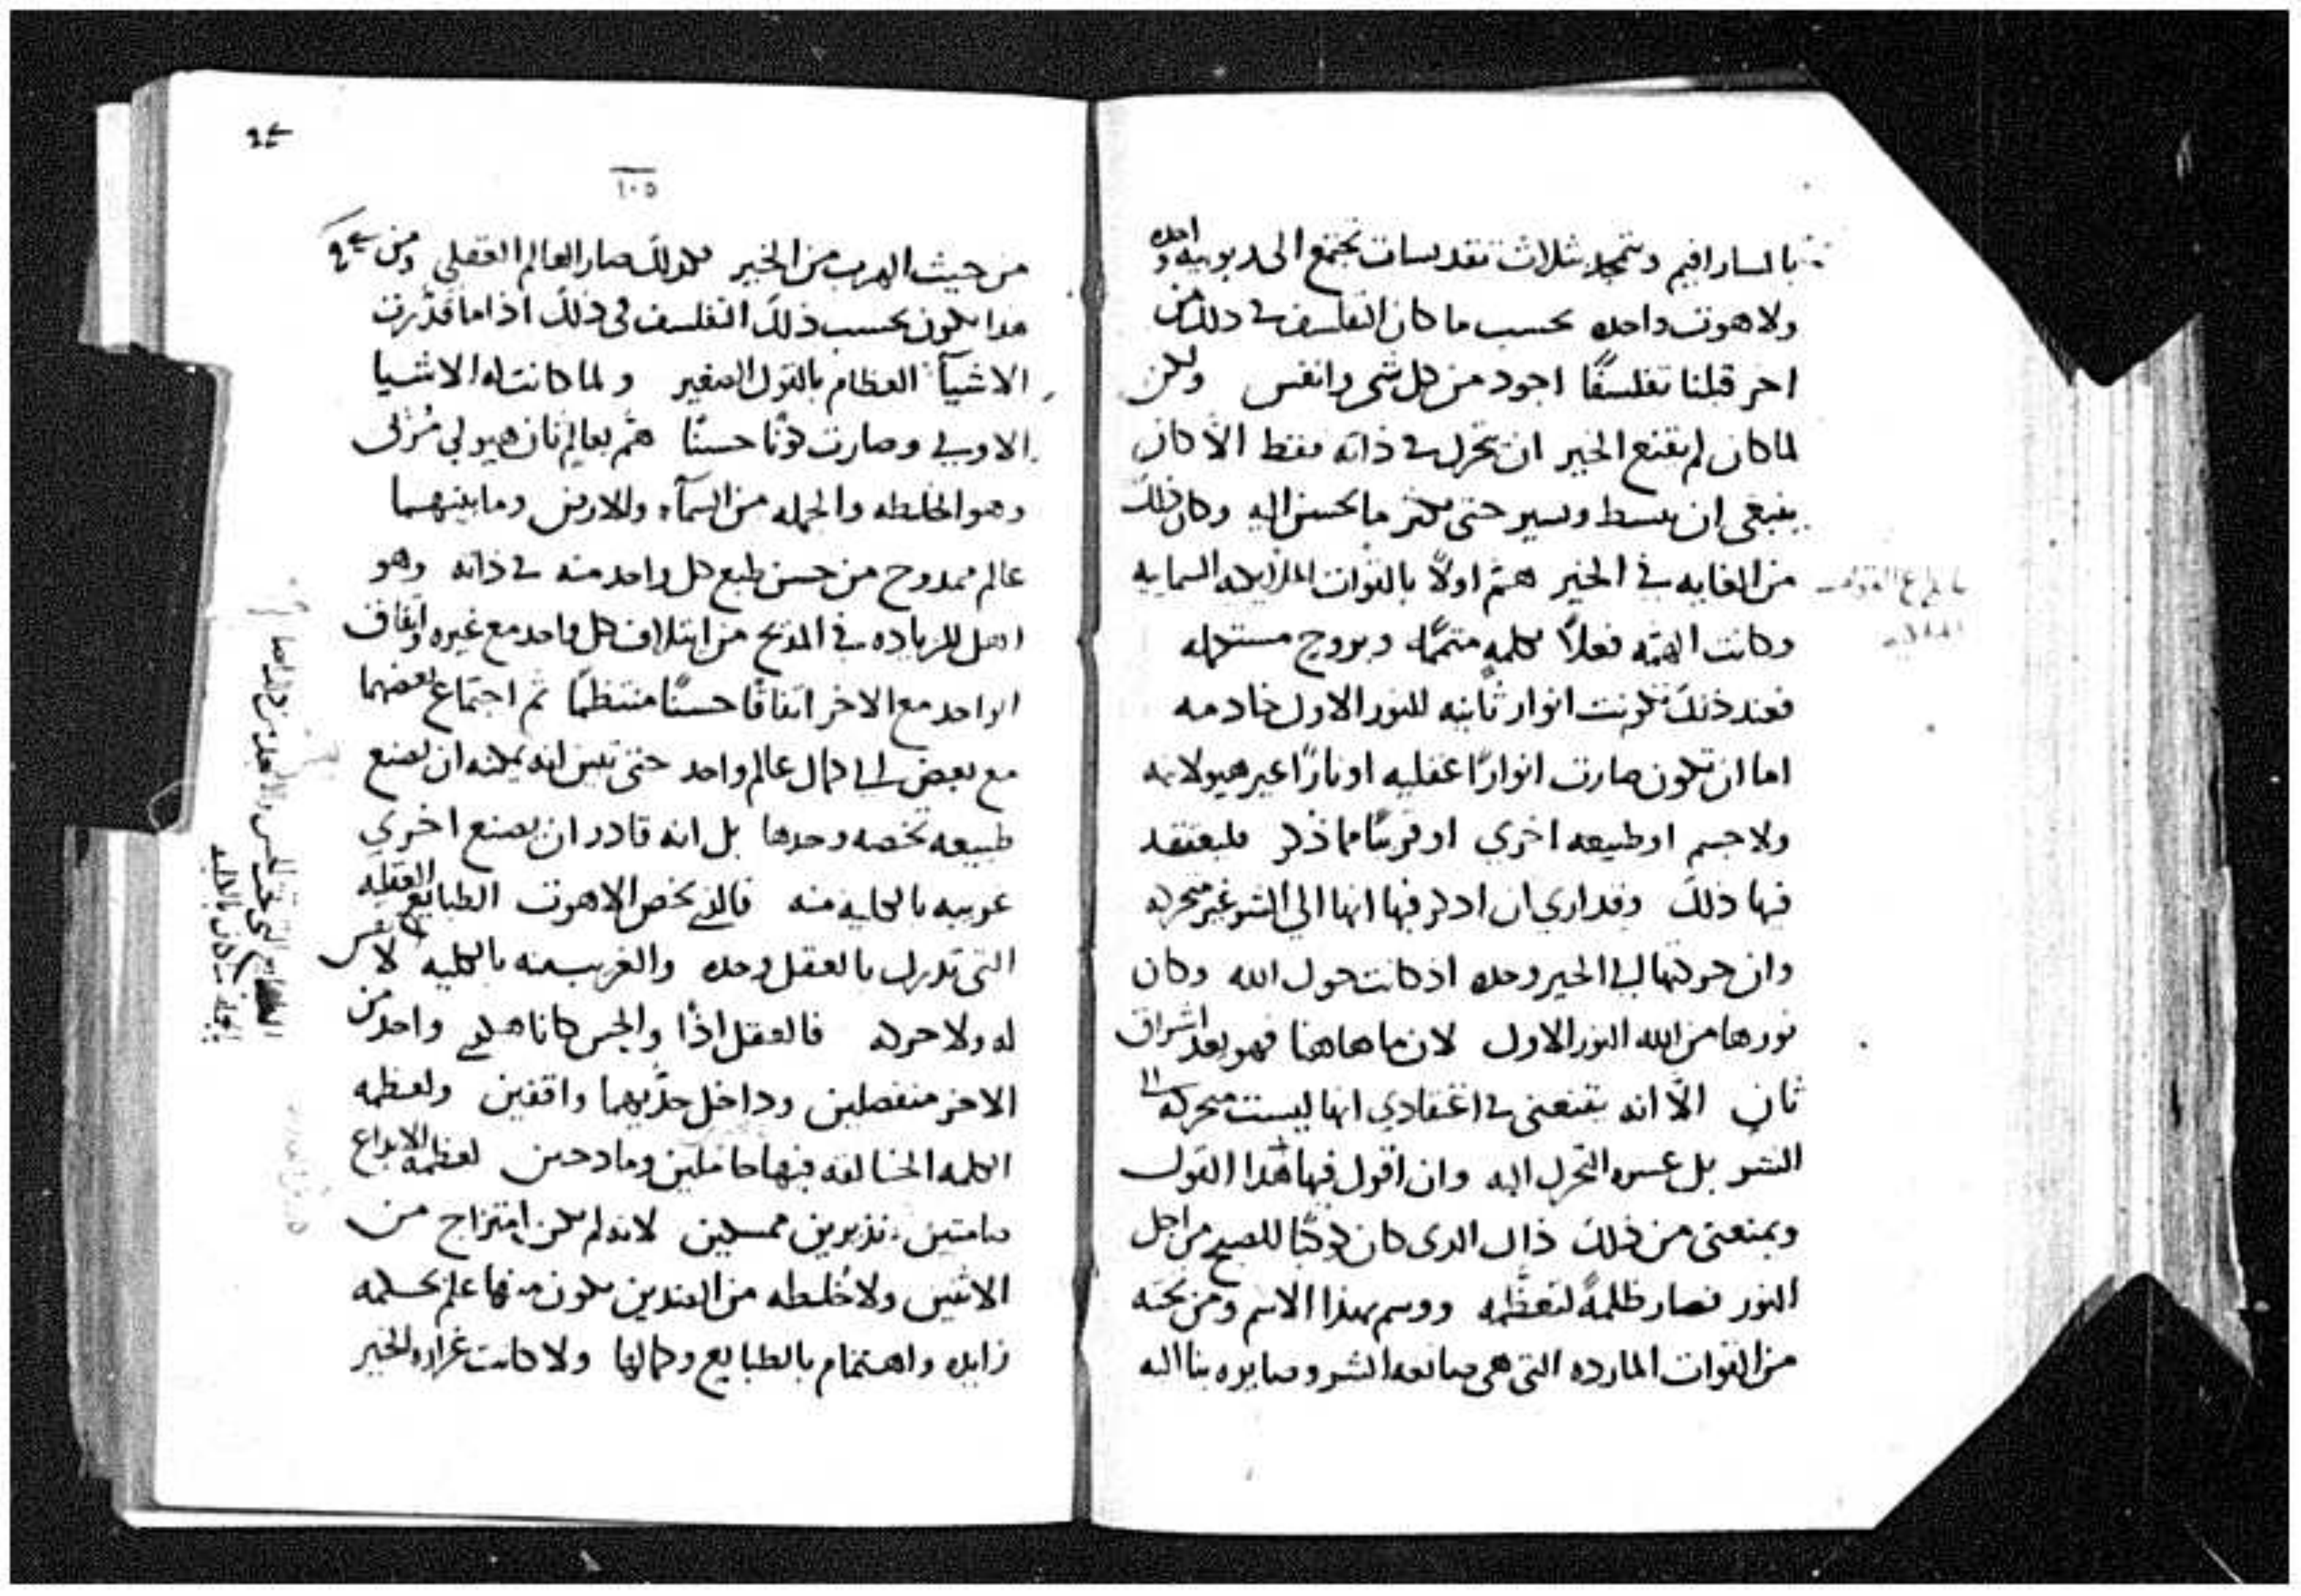 بالسارافيم وتتمجد بثلاث تقديسات تجتمع الى ربوبيه واحده
ولاهوت واحده بحسب ما كان التفلسف في ذلك من
اخر قبلنا تفلسفًا اجود من كل شي وانفس ولكن
لما كان لم يقنع الخير ان تحرك في ذاته فقط الا كان
ينبغي ان يبسط ويسير حتى يكثر ما يحسن اليه وكان ذلك
من الغايه في الخير همّ اولاً بالقوات الملايكيه السمايه
وكانت الهمّه فعلاً بكلمه متممًا وبروح مستكمله
فعند ذلك تكونت انوار ثانيه للنور الاول خادمه
اما ان تكون صارت انوارًا عقليه او نارًا غير هيولانيه
ولا جسم او طبيعه اخري او قريبًا مما ذكر فليعتقد
فيها ذلك وقد اري ان اذكر فيها انها الي الشر غير متحركه
وان حركتها الي الخير وحده اذ كانت حول الله وكان
نورها من الله النور الاول لان ما هاهنا فهو بعد اشراق
ثان الاّ انه يقنعني في اعتقادي انها ليست متحركه الى
الشر بل عسره التحرك اليه وان اقول فيها هذا القول
ويمنعني من ذلك ذاك الذي كان كوكبًا للصبح من اجل
النور فصار ظلمةً لتعظّمه ووسم بهذا الاسم ومن تحته
من القوات المارده التي هي صانعه الشر وصايره بنا اليه
١٠٥
من حيث الهرب من الخير فكذلك صار العالم العقلي ومن
هذا يكون بحسب ذلك التفلسف في ذلك اذا ما قدّرت
الاشيآ العظام بالقول الصغير ولما كانت له الاشيا
الاولي وصارت كونًا حسنًا همّ بعالم ثان هيولي مُرئي
وهو الخلطه والجمله من السمآء والارض وما بينهما
عالم ممدوح من حسن طبع كل واحد منه في ذاته وهو
اهل للزياده في المدح من ايتلاف كل واحد مع غيره واتفاق
الواحد مع الاخر اتفاقًا حسنًا منتظمًا ثم اجتماع بعضهما
مع بعض الي كمال عالم واحد حتى تبين انه يمكنه ان يصنع
طبيعه تخصه وحدها بل انه قادر ان يصنع اخري
غريبه بالكليه منه فالذي يخص الاهوت الطبايع العقليه
التي تدرك بالعقل وحده والغريبه منه بالكليه لا نفس
له ولا حركه فالعقل اذًا والحس كانا هكذي واحد من
الاخر منفصلين وداخل حدّيهما واقفين ولعظمه
الكلمه الخالقه فيها حاملين ومادحين لعظمه الابداع
صامتين نذيرين ممسكين لانه لم يكن امتزاج من
الاثنين ولا خُلطه من الضدين يكون منها علم بحكمه
زايده واهتمام بالطبايع وكمالها ولا كانت غزاره الخير